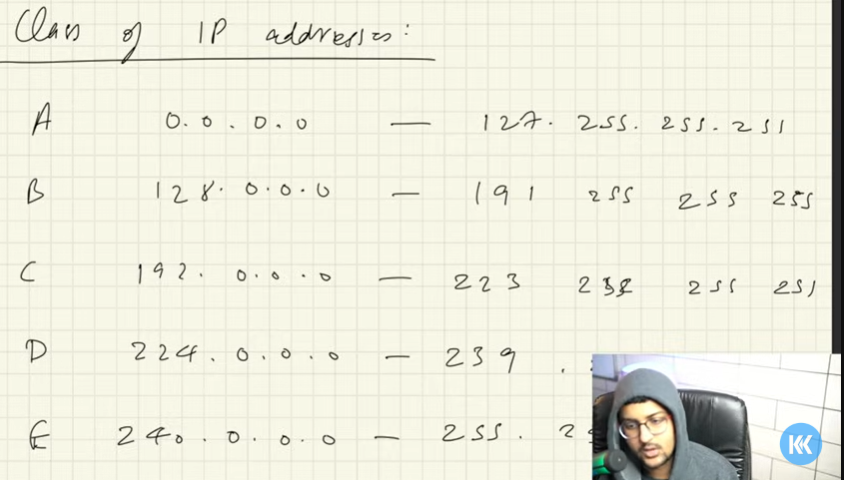 Class of IP addresses:
A 0.0.0.0 — 127.255.255.255
B 128.0.0.0 — 191 255 255 255
C 192.0.0.0 — 223 255 255 255
D 224.0.0.0 — 239 .
E 240.0.0.0 — 255. 2
K